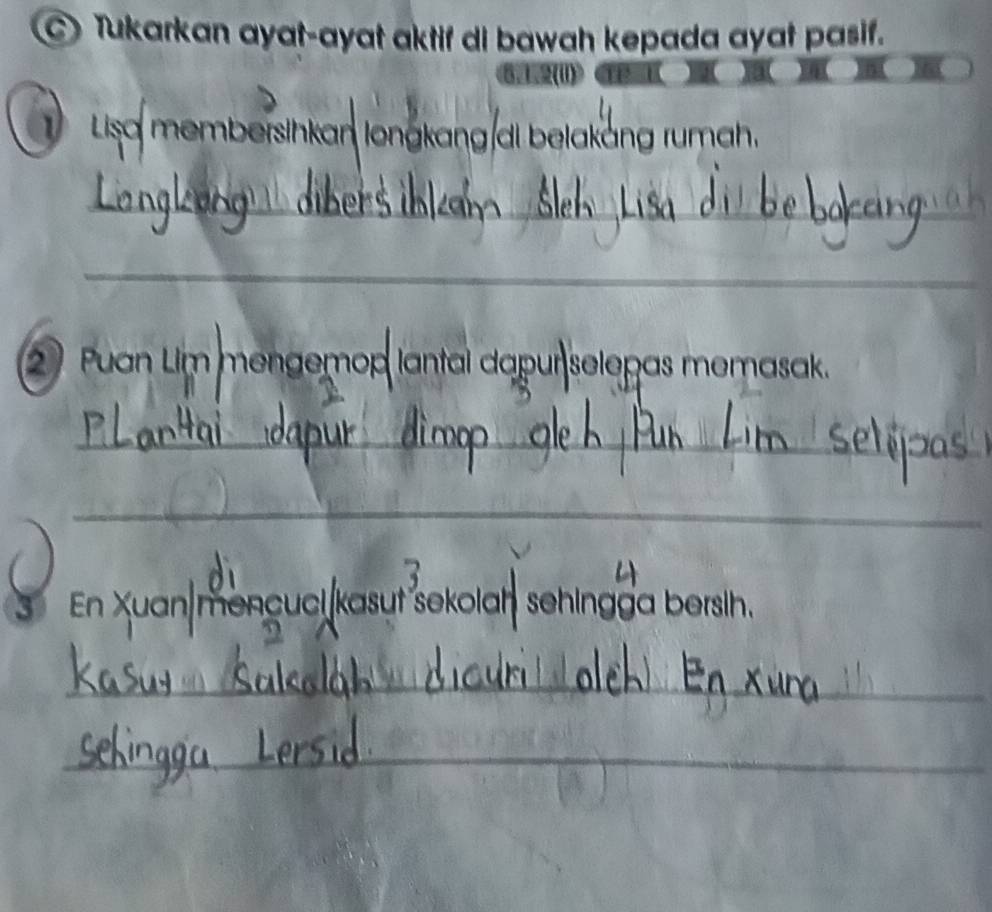 C Tukarkan ayat-ayat aktif di bawah kepada ayat pasif.
5.1.2(ii) TP 1 2 3 4 5 6
2 3 4
1 Lisa membersihkan longkang di belakang rumah.
1
Longkang dibersihkan oleh Lisa di bebakang
2 Puan Lim mengemop lantai dapur selepas memasak.
1 2 3
Lantai dapur dimop oleh Pun Lim selepas
di 3 4
3 En Xuan mencuci kasut sekolah sehingga bersih.
1 2
Kasut sakolah dicuri oleh En xuna
sehingga bersid.